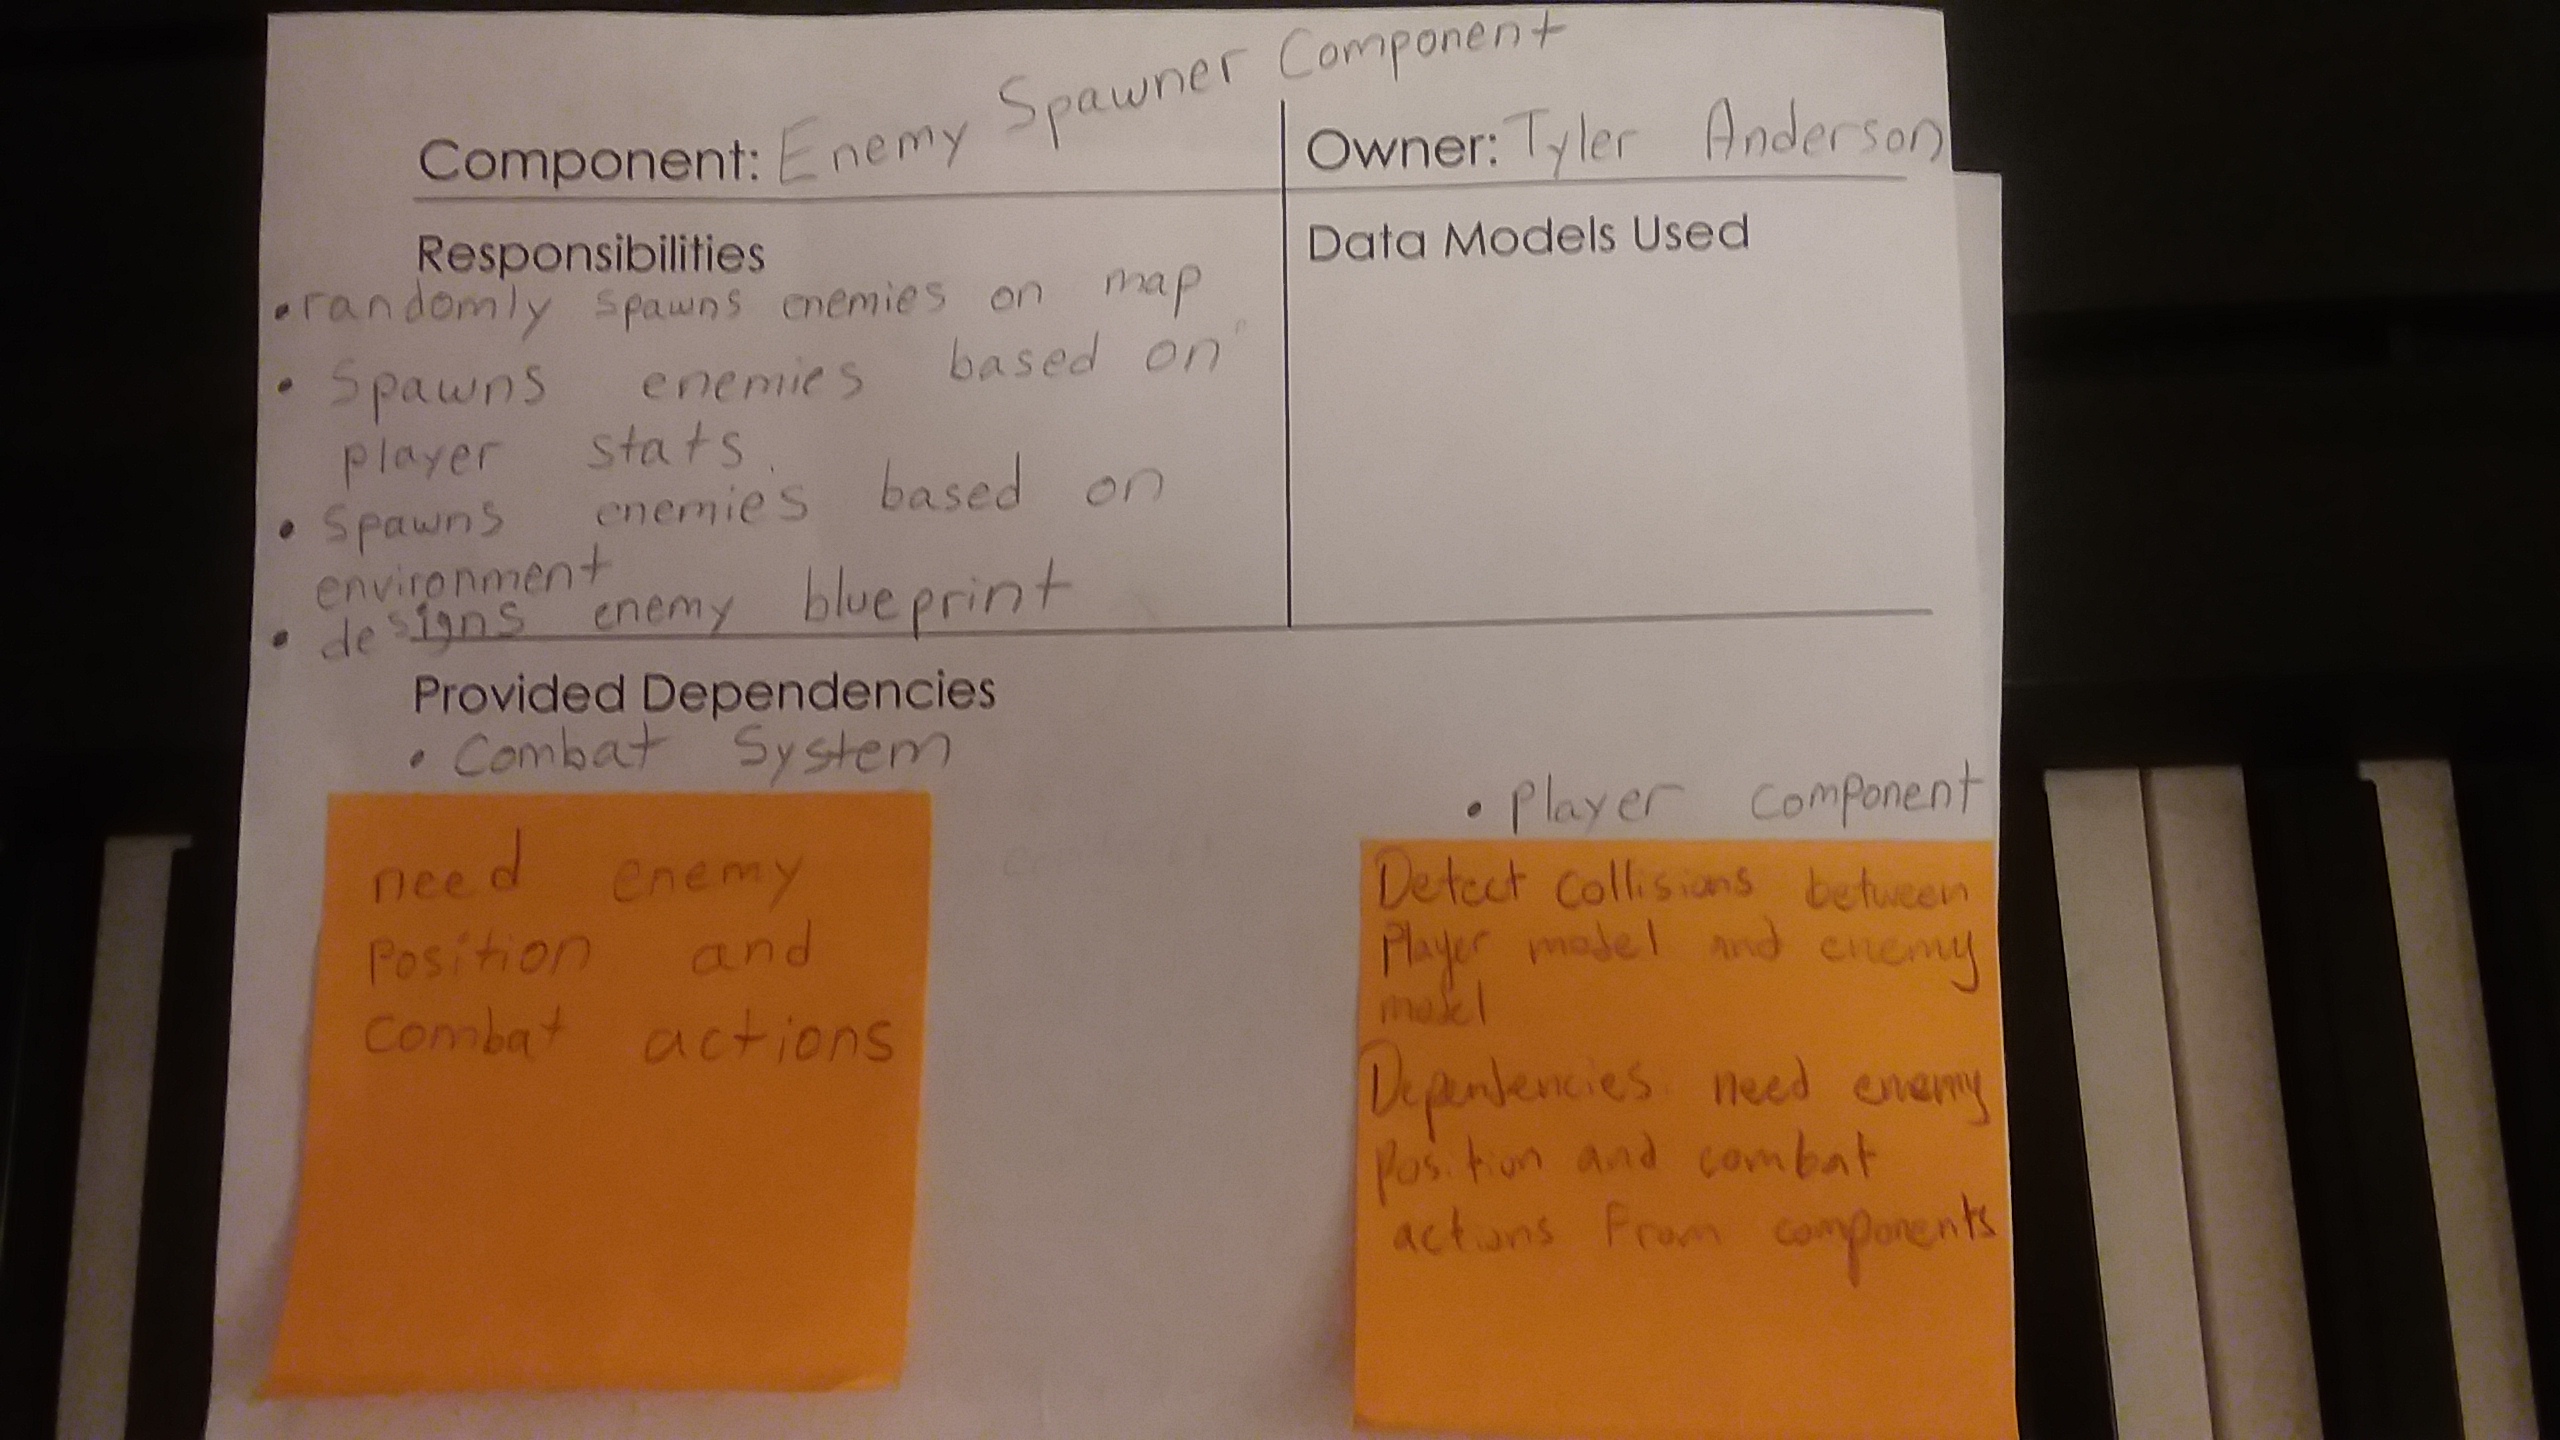 Component: Enemy Spawner Component
Owner: Tyler Anderson
Responsibilities
• randomly spawns enemies on map
• Spawns enemies based on
player stats.
• Spawns enemies based on
environment
• designs enemy blueprint
Data Models Used
Provided Dependencies
• Combat System
need enemy
position and
combat actions
• Player component
Detect collisions between
Player model and enemy
model
Dependencies: need enemy
position and combat
actions From components